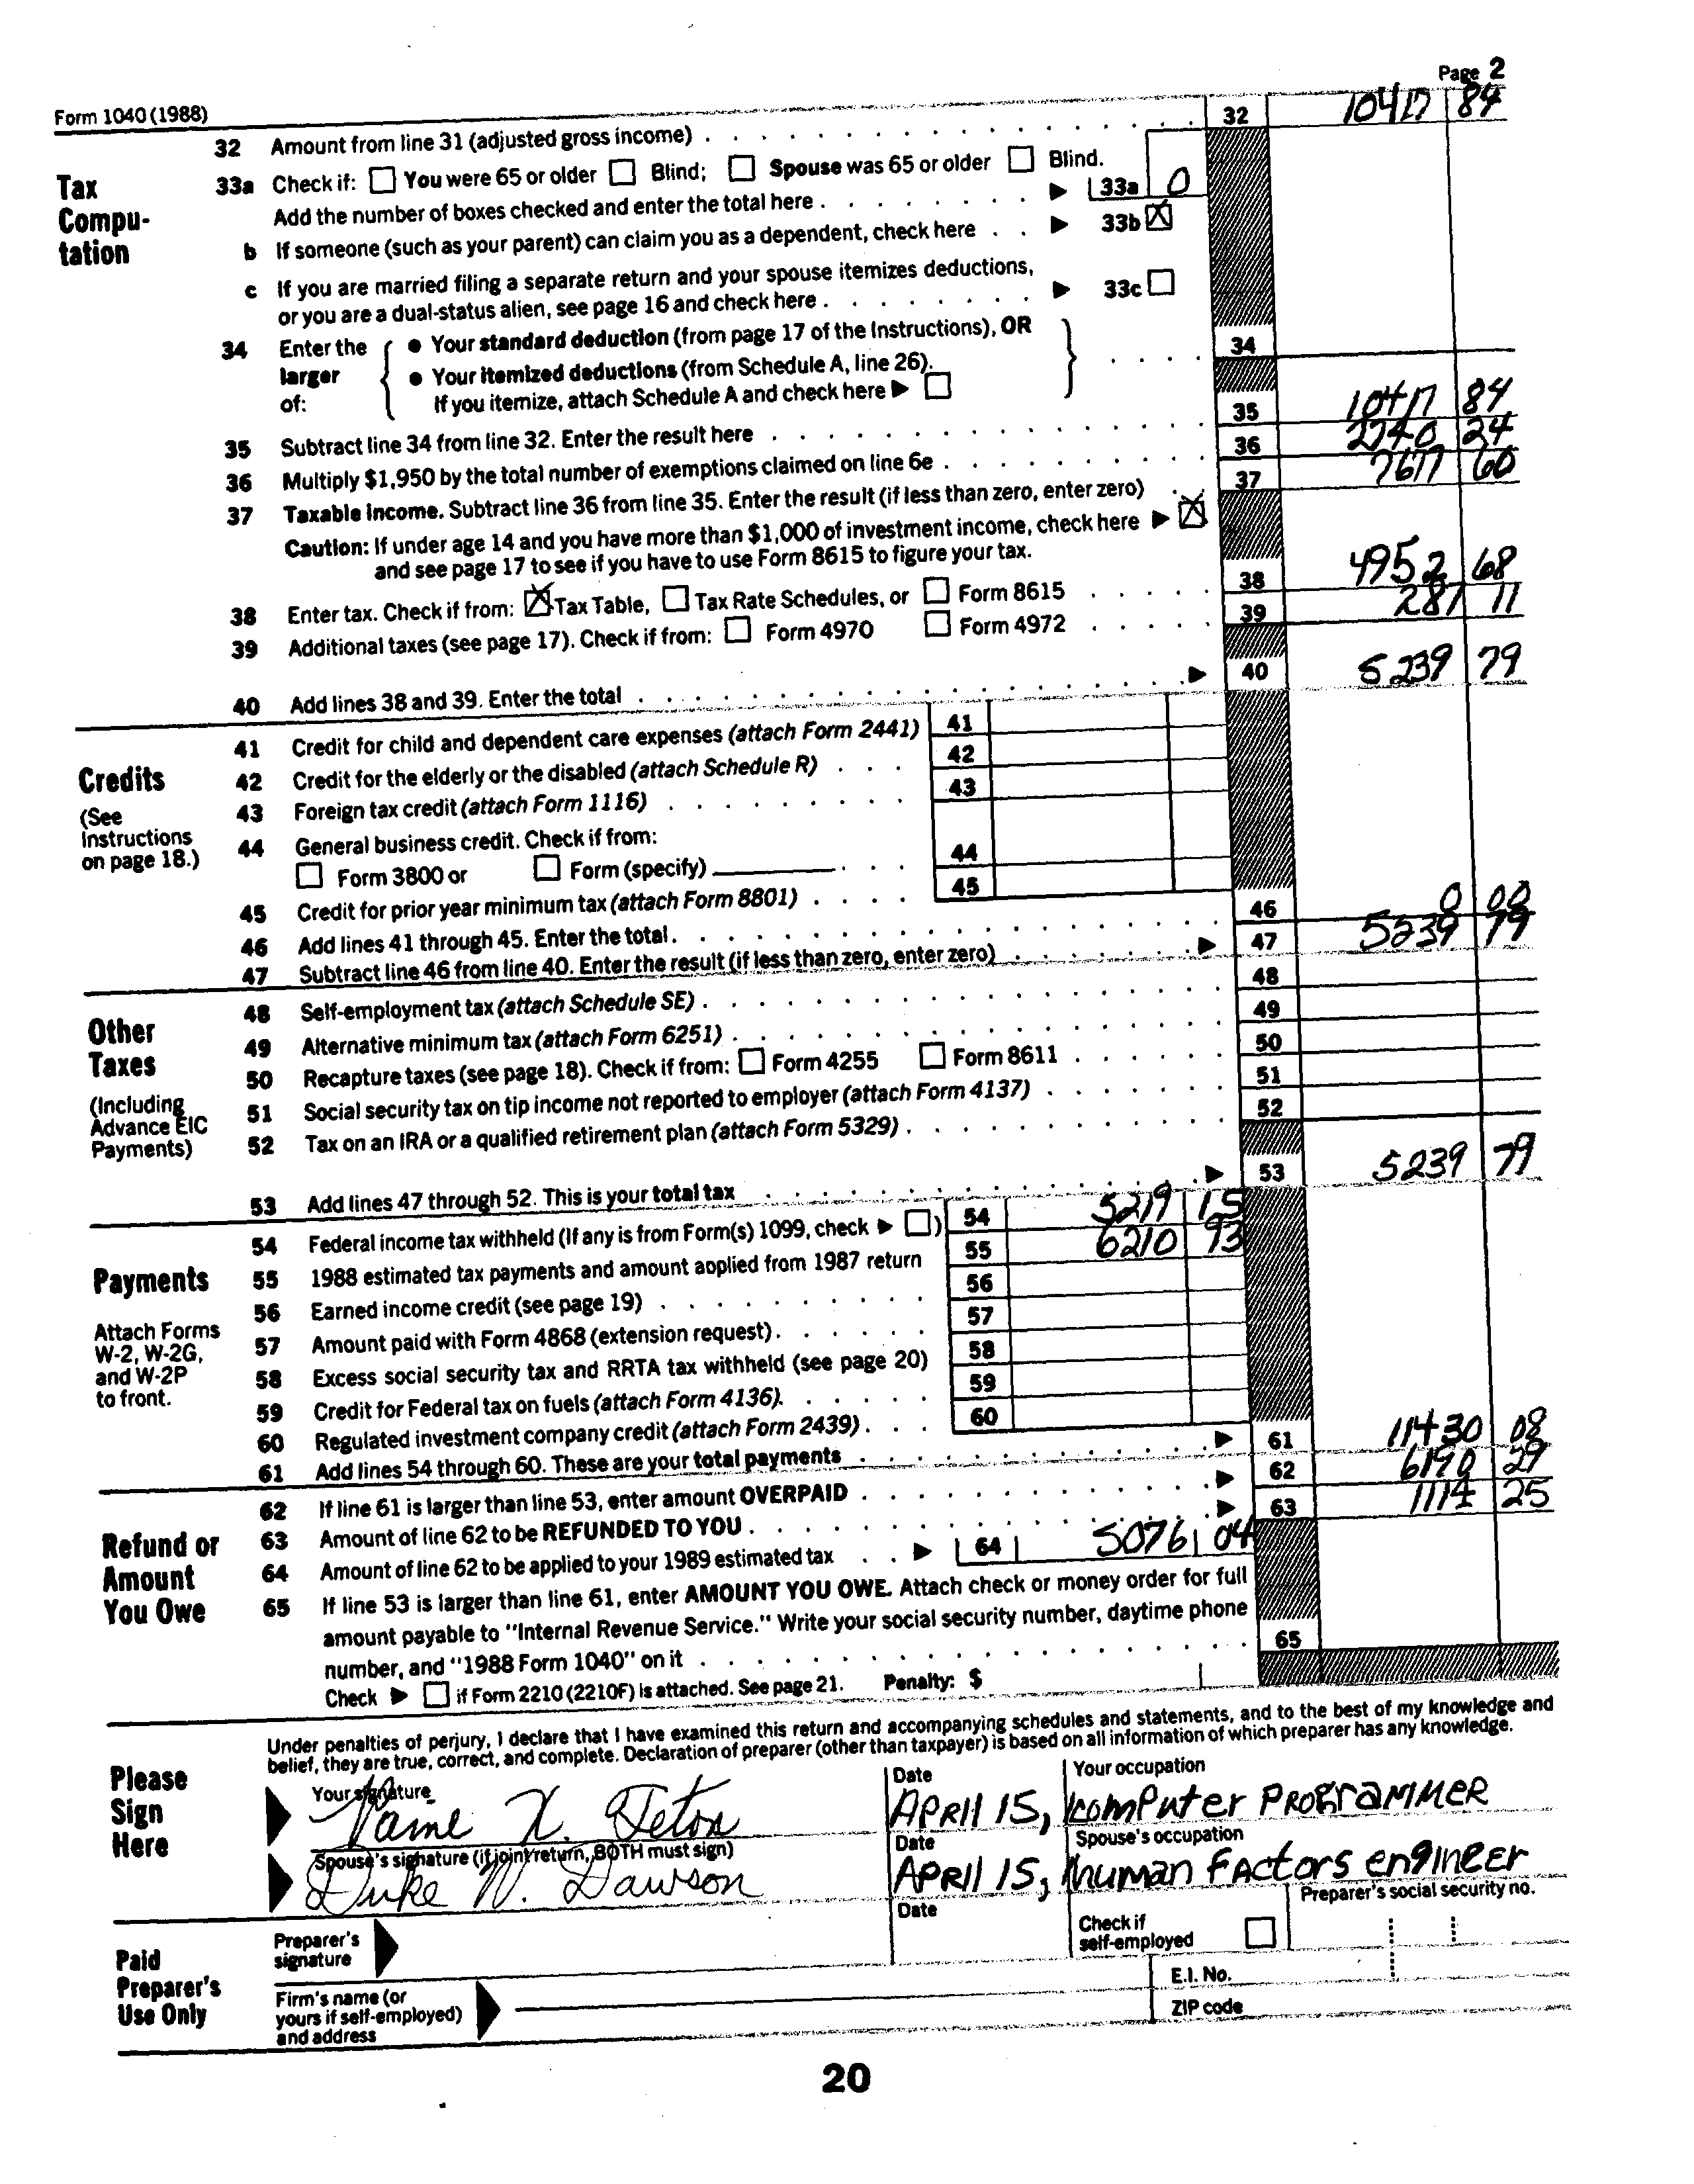 Page 2
Form 1040 (1988)
32 Amount from line 31 (adjusted gross income) . . . 32 10417 84
Tax Compu-tation
33a Check if: You were 65 or older Blind; Spouse was 65 or older Blind.
Add the number of boxes checked and enter the total here . . . 33a 0
b If someone (such as your parent) can claim you as a dependent, check here . . 33b X
c If you are married filing a separate return and your spouse itemizes deductions,
or you are a dual-status alien, see page 16 and check here . . . 33c
34 Enter the larger of:
• Your standard deduction (from page 17 of the Instructions), OR
• Your itemized deductions (from Schedule A, line 26).
If you itemize, attach Schedule A and check here
34
35 Subtract line 34 from line 32. Enter the result here . . . 35 10417 84
36 Multiply $1,950 by the total number of exemptions claimed on line 6e . . . 36 2740 24
37 Taxable income. Subtract line 36 from line 35. Enter the result (if less than zero, enter zero) . . 37 7677 60
Caution: If under age 14 and you have more than $1,000 of investment income, check here X
and see page 17 to see if you have to use Form 8615 to figure your tax.
38 Enter tax. Check if from: X Tax Table, Tax Rate Schedules, or Form 8615 . . . 38 4952 68
39 Additional taxes (see page 17). Check if from: Form 4970 Form 4972 . . . 39 287 11
40 Add lines 38 and 39. Enter the total . . . 40 5239 79
Credits
(See Instructions on page 18.)
41 Credit for child and dependent care expenses (attach Form 2441) 41
42 Credit for the elderly or the disabled (attach Schedule R) . . . 42
43 Foreign tax credit (attach Form 1116) . . . 43
44 General business credit. Check if from:
Form 3800 or Form (specify) . . . 44
45 Credit for prior year minimum tax (attach Form 8801) . . . 45
46 Add lines 41 through 45. Enter the total . . . 46 0 00
47 Subtract line 46 from line 40. Enter the result (if less than zero, enter zero) . . . 47 5239 79
Other Taxes
(Including Advance EIC Payments)
48 Self-employment tax (attach Schedule SE) . . . 48
49 Alternative minimum tax (attach Form 6251) . . . 49
50 Recapture taxes (see page 18). Check if from: Form 4255 Form 8611 . . . 50
51 Social security tax on tip income not reported to employer (attach Form 4137) . . . 51
52 Tax on an IRA or a qualified retirement plan (attach Form 5329) . . . 52
53 Add lines 47 through 52. This is your total tax . . . 53 5239 79
Payments
Attach Forms W-2, W-2G, and W-2P to front.
54 Federal income tax withheld (If any is from Form(s) 1099, check ) 54 5219 15
55 1988 estimated tax payments and amount applied from 1987 return 55 6210 93
56 Earned income credit (see page 19) . . . 56
57 Amount paid with Form 4868 (extension request) . . . 57
58 Excess social security tax and RRTA tax withheld (see page 20) 58
59 Credit for Federal tax on fuels (attach Form 4136) . . . 59
60 Regulated investment company credit (attach Form 2439) . . . 60
61 Add lines 54 through 60. These are your total payments . . . 61 11430 08
Refund or Amount You Owe
62 If line 61 is larger than line 53, enter amount OVERPAID . . . 62 6190 29
63 Amount of line 62 to be REFUNDED TO YOU . . . 63 1114 25
64 Amount of line 62 to be applied to your 1989 estimated tax . . 64 5076 04
65 If line 53 is larger than line 61, enter AMOUNT YOU OWE. Attach check or money order for full
amount payable to "Internal Revenue Service." Write your social security number, daytime phone
number, and "1988 Form 1040" on it . . . 65
Check if Form 2210 (2210F) is attached. See page 21. Penalty: $
Please Sign Here
Under penalties of perjury, I declare that I have examined this return and accompanying schedules and statements, and to the best of my knowledge and
belief, they are true, correct, and complete. Declaration of preparer (other than taxpayer) is based on all information of which preparer has any knowledge.
Your signature Date Your occupation
X. Teton APRIl 15, computer PROgRaMMeR
Spouse's signature (if joint return, BOTH must sign) Date Spouse's occupation
Duke W. Dawson APRIl 15, human FActors engineer
Paid Preparer's Use Only
Preparer's signature Date Check if self-employed Preparer's social security no.
Firm's name (or yours if self-employed) and address
E.I. No.
ZIP code
20